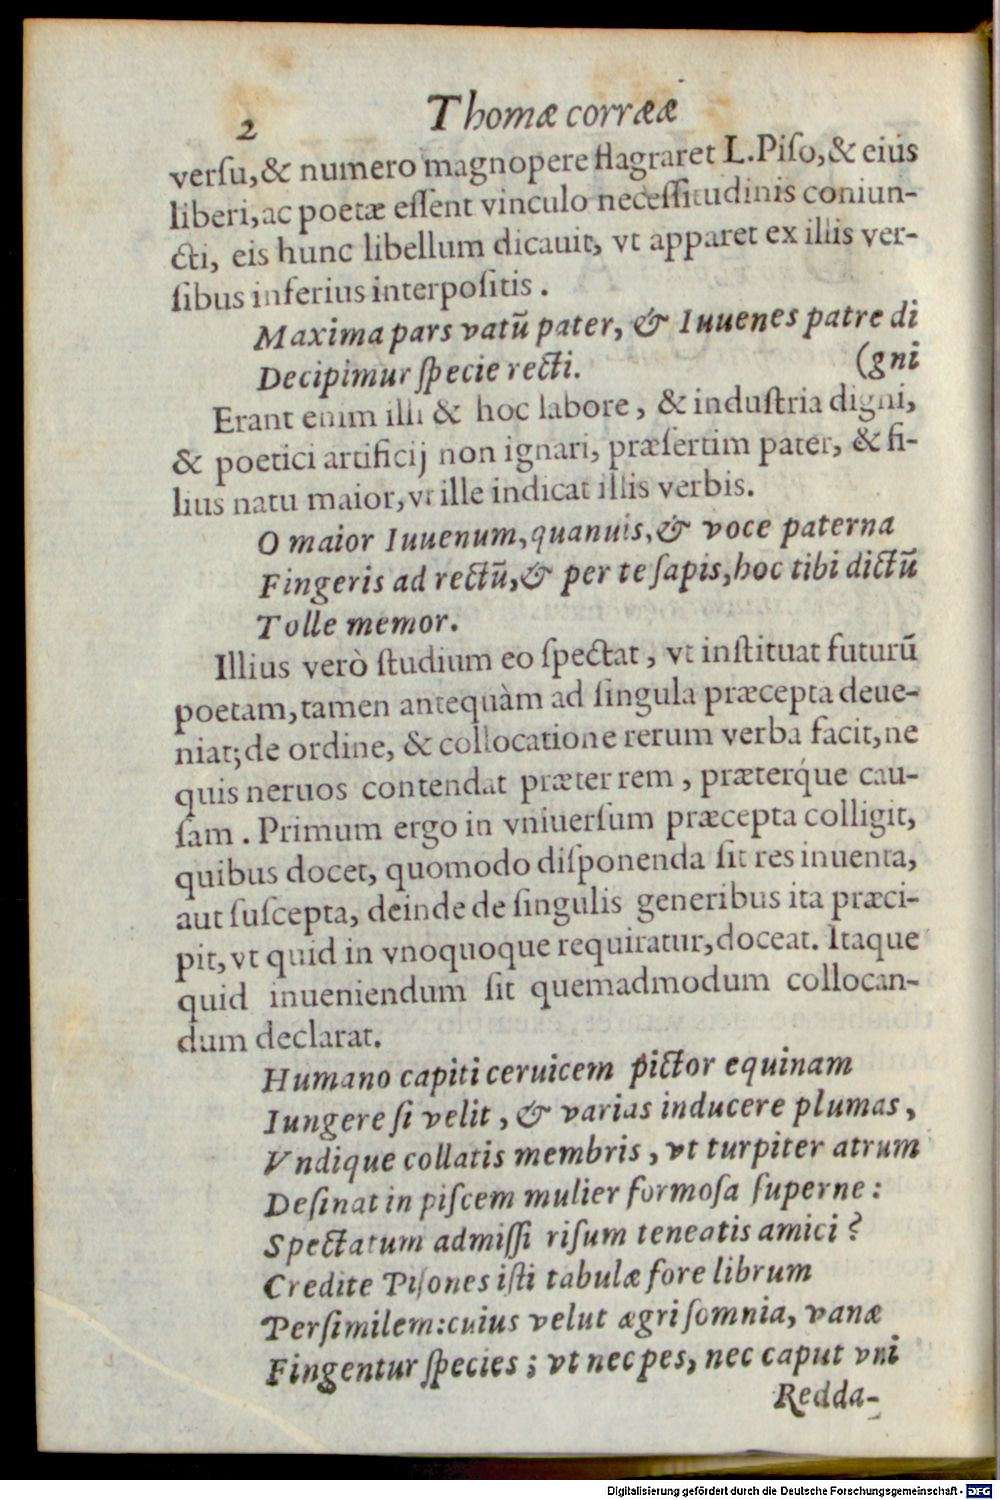 2 Thomæ corrææ
verſu, & numero magnopere flagraret L.Piſo, & eius
liberi, ac poetæ eſſent vinculo neceſſitudinis coniun-
cti, eis hunc libellum dicauit, vt apparet ex illis ver-
ſibus inferius interpoſitis.
Maxima pars vatũ pater, & Iuuenes patre di
Decipimur ſpecie recti. (gni
Erant enim illi & hoc labore, & induſtria digni,
& poetici artificij non ignari, præſertim pater, & fi-
lius natu maior, vt ille indicat illis verbis.
O maior Iuuenum, quanuis, & voce paterna
Fingeris ad rectũ, & per te ſapis, hoc tibi dictũ
Tolle memor.
Illius verò ſtudium eo ſpectat, vt inſtituat futurũ
poetam, tamen antequàm ad ſingula præcepta deue-
niat; de ordine, & collocatione rerum verba facit, ne
quis neruos contendat præter rem, præterq́ue cau-
ſam. Primum ergo in vniuerſum præcepta colligit,
quibus docet, quomodo diſponenda ſit res inuenta,
aut ſuſcepta, deinde de ſingulis generibus ita præci-
pit, vt quid in vnoquoque requiratur, doceat. Itaque
quid inueniendum ſit quemadmodum collocan-
dum declarat.
Humano capiti ceruicem pictor equinam
Iungere ſi velit, & varias inducere plumas,
Vndique collatis membris, vt turpiter atrum
Deſinat in piſcem mulier formoſa ſuperne:
Spectatum admiſſi riſum teneatis amici?
Credite Piſones iſti tabulæ fore librum
Perſimilem: cuius velut ægri ſomnia, vanæ
Fingentur ſpecies; vt nec pes, nec caput vni
Redda-
Digitalisierung gefördert durch die Deutsche Forschungsgemeinschaft - DFG